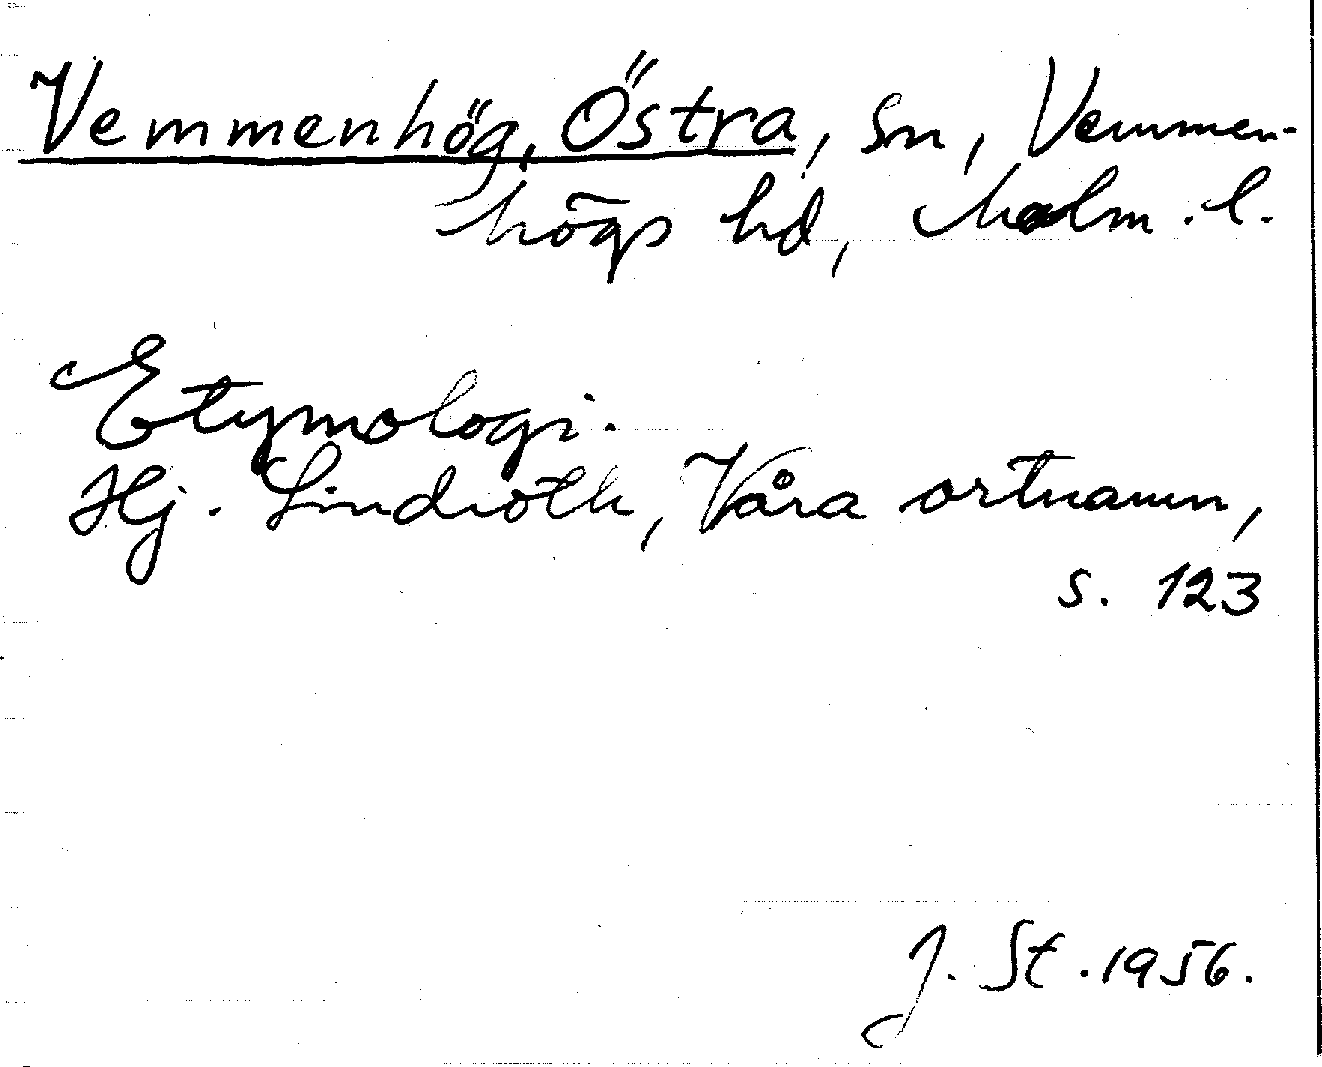 Vemmenhög, Östra, Sn, Vemmen-
högs hd, Malm. l.
Etymologi.
Hj. Lindroth, Våra ortnamn,
s. 123
J. St. 1956.